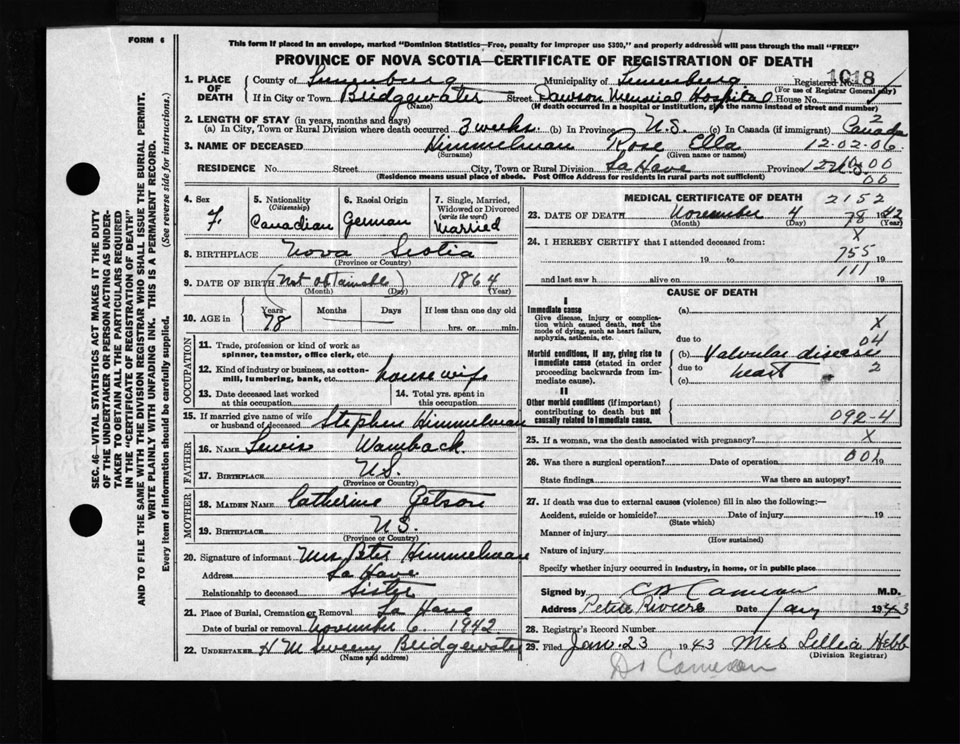 FORM 6
This form if placed in an envelope, marked "Dominion Statistics—Free, penalty for improper use $300," and properly addressed will pass through the mail "FREE"
PROVINCE OF NOVA SCOTIA—CERTIFICATE OF REGISTRATION OF DEATH
1018
1. PLACE OF DEATH
County of Lunenburg Municipality of Lunenburg Registered No.
(For use of Registrar General only)
If in City or Town Bridgewater Street Dawson Memorial Hospital House No.
(Name) (If death occurred in a hospital or institution, give the name instead of street and number)
2. LENGTH OF STAY (in years, months and days)
(a) In City, Town or Rural Division where death occurred 3 weeks (b) In Province N.S. (c) In Canada (if immigrant) Canada
2
3. NAME OF DECEASED Himmelman Rose Ella 12-02-06
(Surname) (Given name or names)
RESIDENCE No. Street City, Town or Rural Division La Have Province N.S.
(Residence means usual place of abode. Post Office Address for residents in rural parts not sufficient)
00
4. Sex F.
5. Nationality (Citizenship) Canadian
6. Racial Origin German
7. Single, Married, Widowed or Divorced (write the word) Married
8. BIRTHPLACE Nova Scotia
(Province or Country)
9. DATE OF BIRTH (Not obtainable) 1864
(Month) (Day) (Year)
10. AGE in Years 78 Months Days If less than one day old
hrs. or min.
OCCUPATION
11. Trade, profession or kind of work as spinner, teamster, office clerk, etc.
12. Kind of industry or business, as cotton-mill, lumbering, bank, etc. housewife
13. Date deceased last worked at this occupation
14. Total yrs. spent in this occupation
15. If married give name of wife or husband of deceased Stephen Himmelman
FATHER
16. NAME Lewis Wamback
17. BIRTHPLACE N.S.
(Province or Country)
MOTHER
18. MAIDEN NAME Catherine Getson
19. BIRTHPLACE N.S.
(Province or Country)
20. Signature of informant Mrs Peter Himmelman
Address La Have
Relationship to deceased Sister
21. Place of Burial, Cremation or Removal La Have
Date of burial or removal November 6 1942
22. UNDERTAKER H M Sweeny Bridgewater
(Name and address)
MEDICAL CERTIFICATE OF DEATH
2152
23. DATE OF DEATH November 4 1942
(Month) (Day) (Year)
78
24. I HEREBY CERTIFY that I attended deceased from:
X
19 to 755 19
111
and last saw h alive on 19
CAUSE OF DEATH
I
Immediate cause
Give disease, injury or complication which caused death, not the mode of dying, such as heart failure, asphyxia, asthenia, etc.
(a)
X
due to
04
Morbid conditions, if any, giving rise to immediate cause (stated in order proceeding backwards from immediate cause).
(b) Valvular disease
due to heart 2
(c)
II
Other morbid conditions (if important) contributing to death but not causally related to immediate cause.
092-4
25. If a woman, was the death associated with pregnancy? X
26. Was there a surgical operation? Date of operation 001 19
State findings Was there an autopsy?
27. If death was due to external causes (violence) fill in also the following:—
Accident, suicide or homicide? Date of injury 19
(State which)
Manner of injury
(How sustained)
Nature of injury
Specify whether injury occurred in industry, in home, or in public place
Signed by M.D.
Address Petite Riviere Date Jany 1943
28. Registrar's Record Number
29. Filed Jan. 23 1943 Mrs Lellia Hebb
(Division Registrar)
Dr Cameron
SEC. 46—VITAL STATISTICS ACT MAKES IT THE DUTY
OF THE UNDERTAKER OR PERSON ACTING AS UNDER-
TAKER TO OBTAIN ALL THE PARTICULARS REQUIRED
IN THE "CERTIFICATE OF REGISTRATION OF DEATH"
AND TO FILE THE SAME WITH THE DIVISION REGISTRAR WHO SHALL ISSUE THE BURIAL PERMIT.
WRITE PLAINLY WITH UNFADING INK. THIS IS A PERMANENT RECORD.
Every item of information should be carefully supplied. (See reverse side for instructions.)